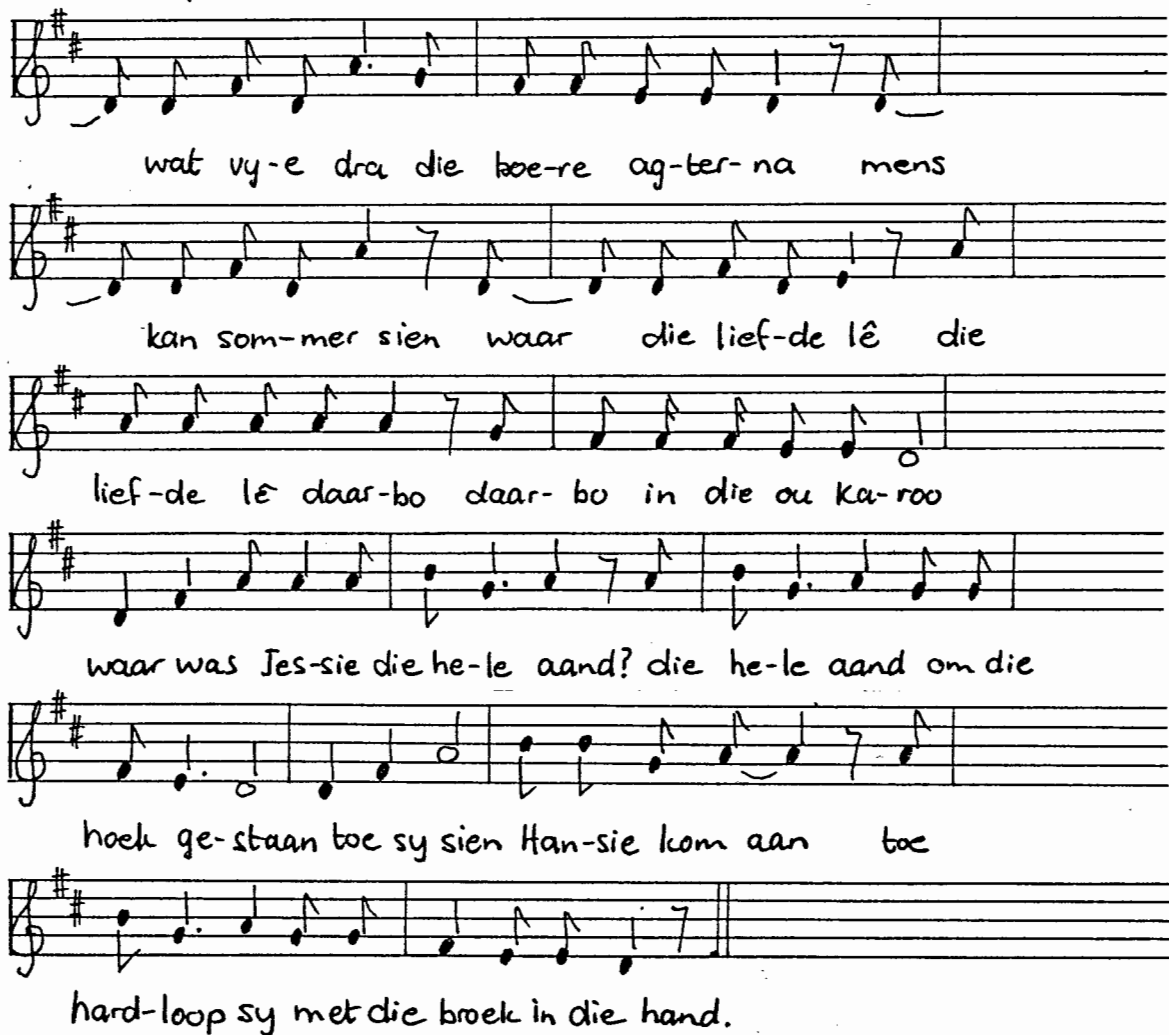 wat vy-e dra die boe-re ag-ter-na mens
kan som-mer sien waar die lief-de lê die
lief-de lê daar-bo daar-bo in die ou ka-roo
waar was Jes-sie die he-le aand? die he-le aand om die
hoek ge-staan toe sy sien Han-sie kom aan toe
hard-loop sy met die broek in die hand.